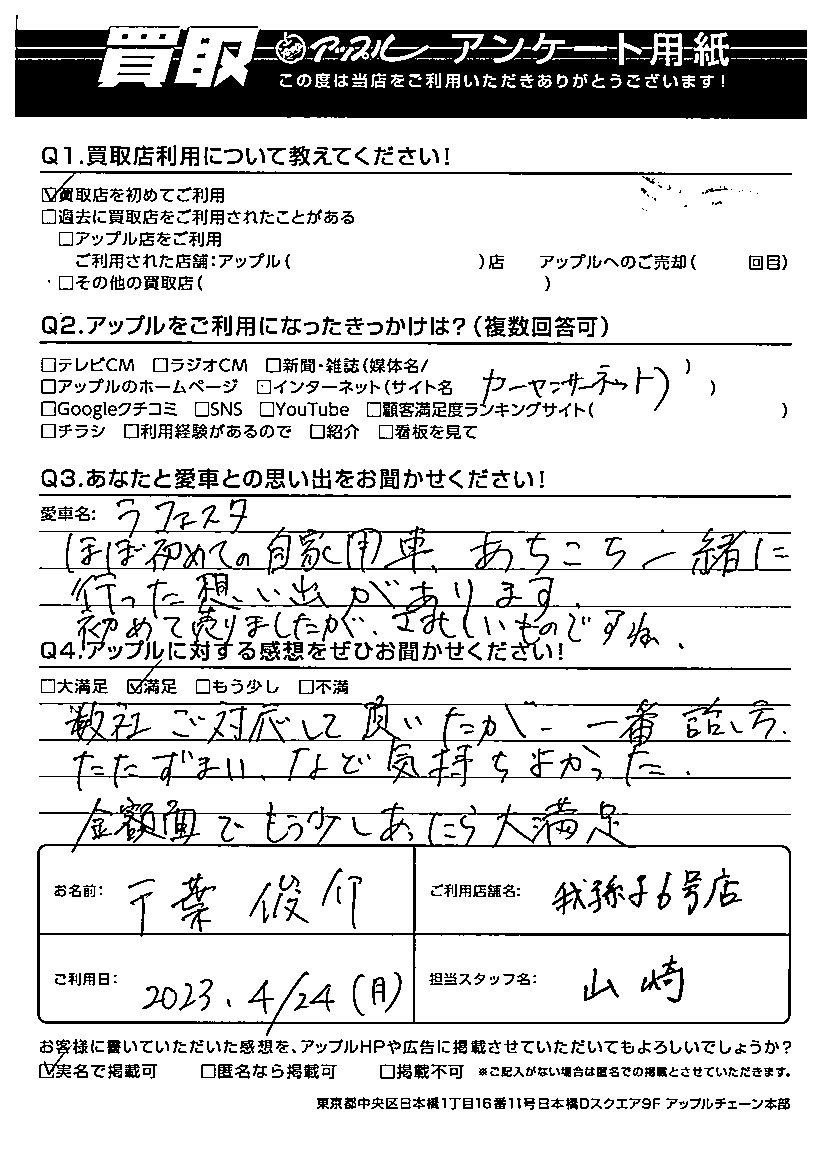 買取 アップル アンケート用紙
この度は当店をご利用いただきありがとうございます!
Q1.買取店利用について教えてください!
☑買取店を初めてご利用
□過去に買取店をご利用されたことがある
□アップル店をご利用
ご利用された店舗:アップル( )店 アップルへのご売却( 回目)
□その他の買取店( )
Q2.アップルをご利用になったきっかけは?(複数回答可)
□テレビCM □ラジオCM □新聞・雑誌(媒体名/ )
□アップルのホームページ □インターネット(サイト名 カーセンサーネット) )
□Googleクチコミ □SNS □YouTube □顧客満足度ランキングサイト( )
□チラシ □利用経験があるので □紹介 □看板を見て
Q3.あなたと愛車との思い出をお聞かせください!
愛車名: ラフェスタ
ほぼ初めての自家用車、あちこち一緒に
行った想い出があります。
初めて売りましたが、さみしいものですね。
Q4.アップルに対する感想をぜひお聞かせください!
□大満足 ☑満足 □もう少し □不満
数社ご対応して頂いたが、一番話し方、
たたずまい、など気持ちよかった。
金額面でもう少しあったら大満足
お名前: 千葉 俊介
ご利用店舗名: 我孫子6号店
ご利用日: 2023.4/24(月)
担当スタッフ名: 山崎
お客様に書いていただいた感想を、アップルHPや広告に掲載させていただいてもよろしいでしょうか?
☑実名で掲載可 □匿名なら掲載可 □掲載不可 ※ご記入がない場合は匿名での掲載とさせていただきます。
東京都中央区日本橋1丁目16番11号日本橋Dスクエア9F アップルチェーン本部